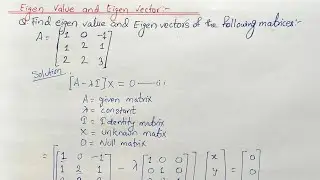 Eigen Value and Eigen Vector:-
Q Find eigen value and Eigen vectors of the following matrices:-
A = [1 0 -1
1 2 1
2 2 1]
Solution
[A - λI] X = 0 —(i)
A = given matrix
λ = constant
I = Identity matrix
X = unknown matrix
O = Null matrix
= [[1 0 -1] - λ [1 0 0]] [x] = [0]
1 2 1 0 1 0 y 0